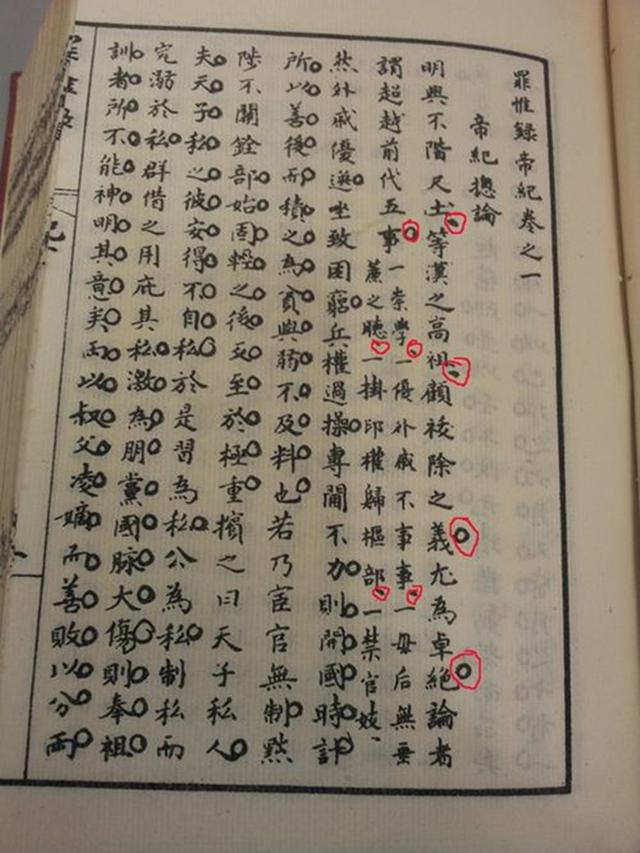 罪惟錄帝紀卷之一
帝紀總論
明興不階尺土等漢之高祖顧祓除之義尤為卓絕論者
謂超越前代五事一崇學一優外戚不事事一毋后無垂
簾之聽一掛印權歸樞部一禁官妓、
然外戚優選坐致困窮兵權過操專閫不加則開國時計
所以善後而積之為貧與弱不及料也若乃宦官無制黜
陟不關銓部始固輕之後反至於極重擯之曰天子私人
夫天子私之彼安得不自私於是習為私公為私制私而
究溺於私群借之用庇其私激為朋黨國脉大傷則奉祖
訓者所不能神明其意矣而以叔父凌嫡而善敗以分兩